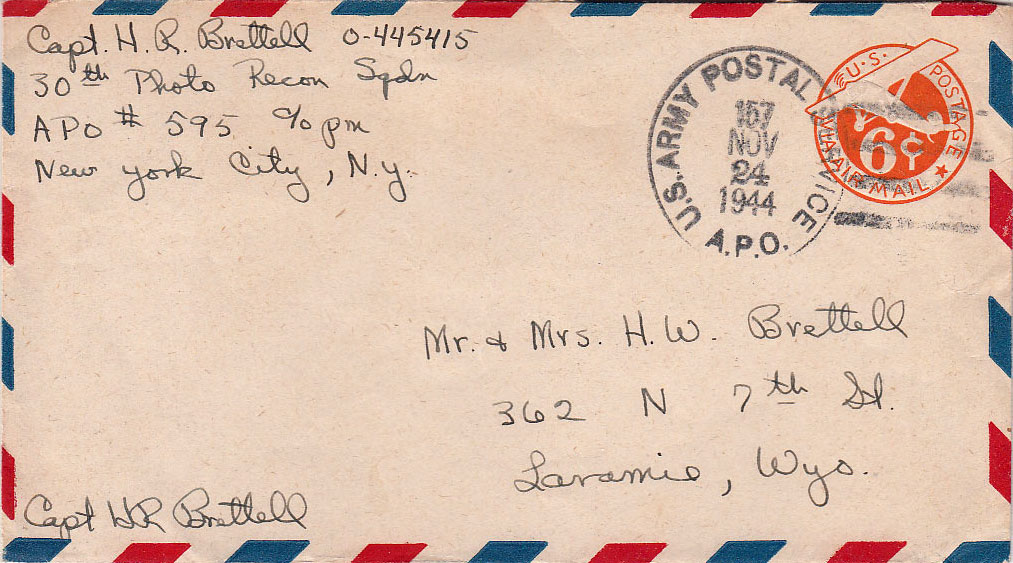 Capt. H. R. Brettell O-445415
30th Photo Recon Sqdn
APO # 595 c/o pm
New York City, N.Y.
U.S. ARMY POSTAL SERVICE
157
NOV
24
1944
A.P.O.
U.S. POSTAGE
6¢
VIA AIR MAIL
Mr. & Mrs. H.W. Brettell
362 N 7th St.
Laramie, Wyo.
Capt HR Brettell